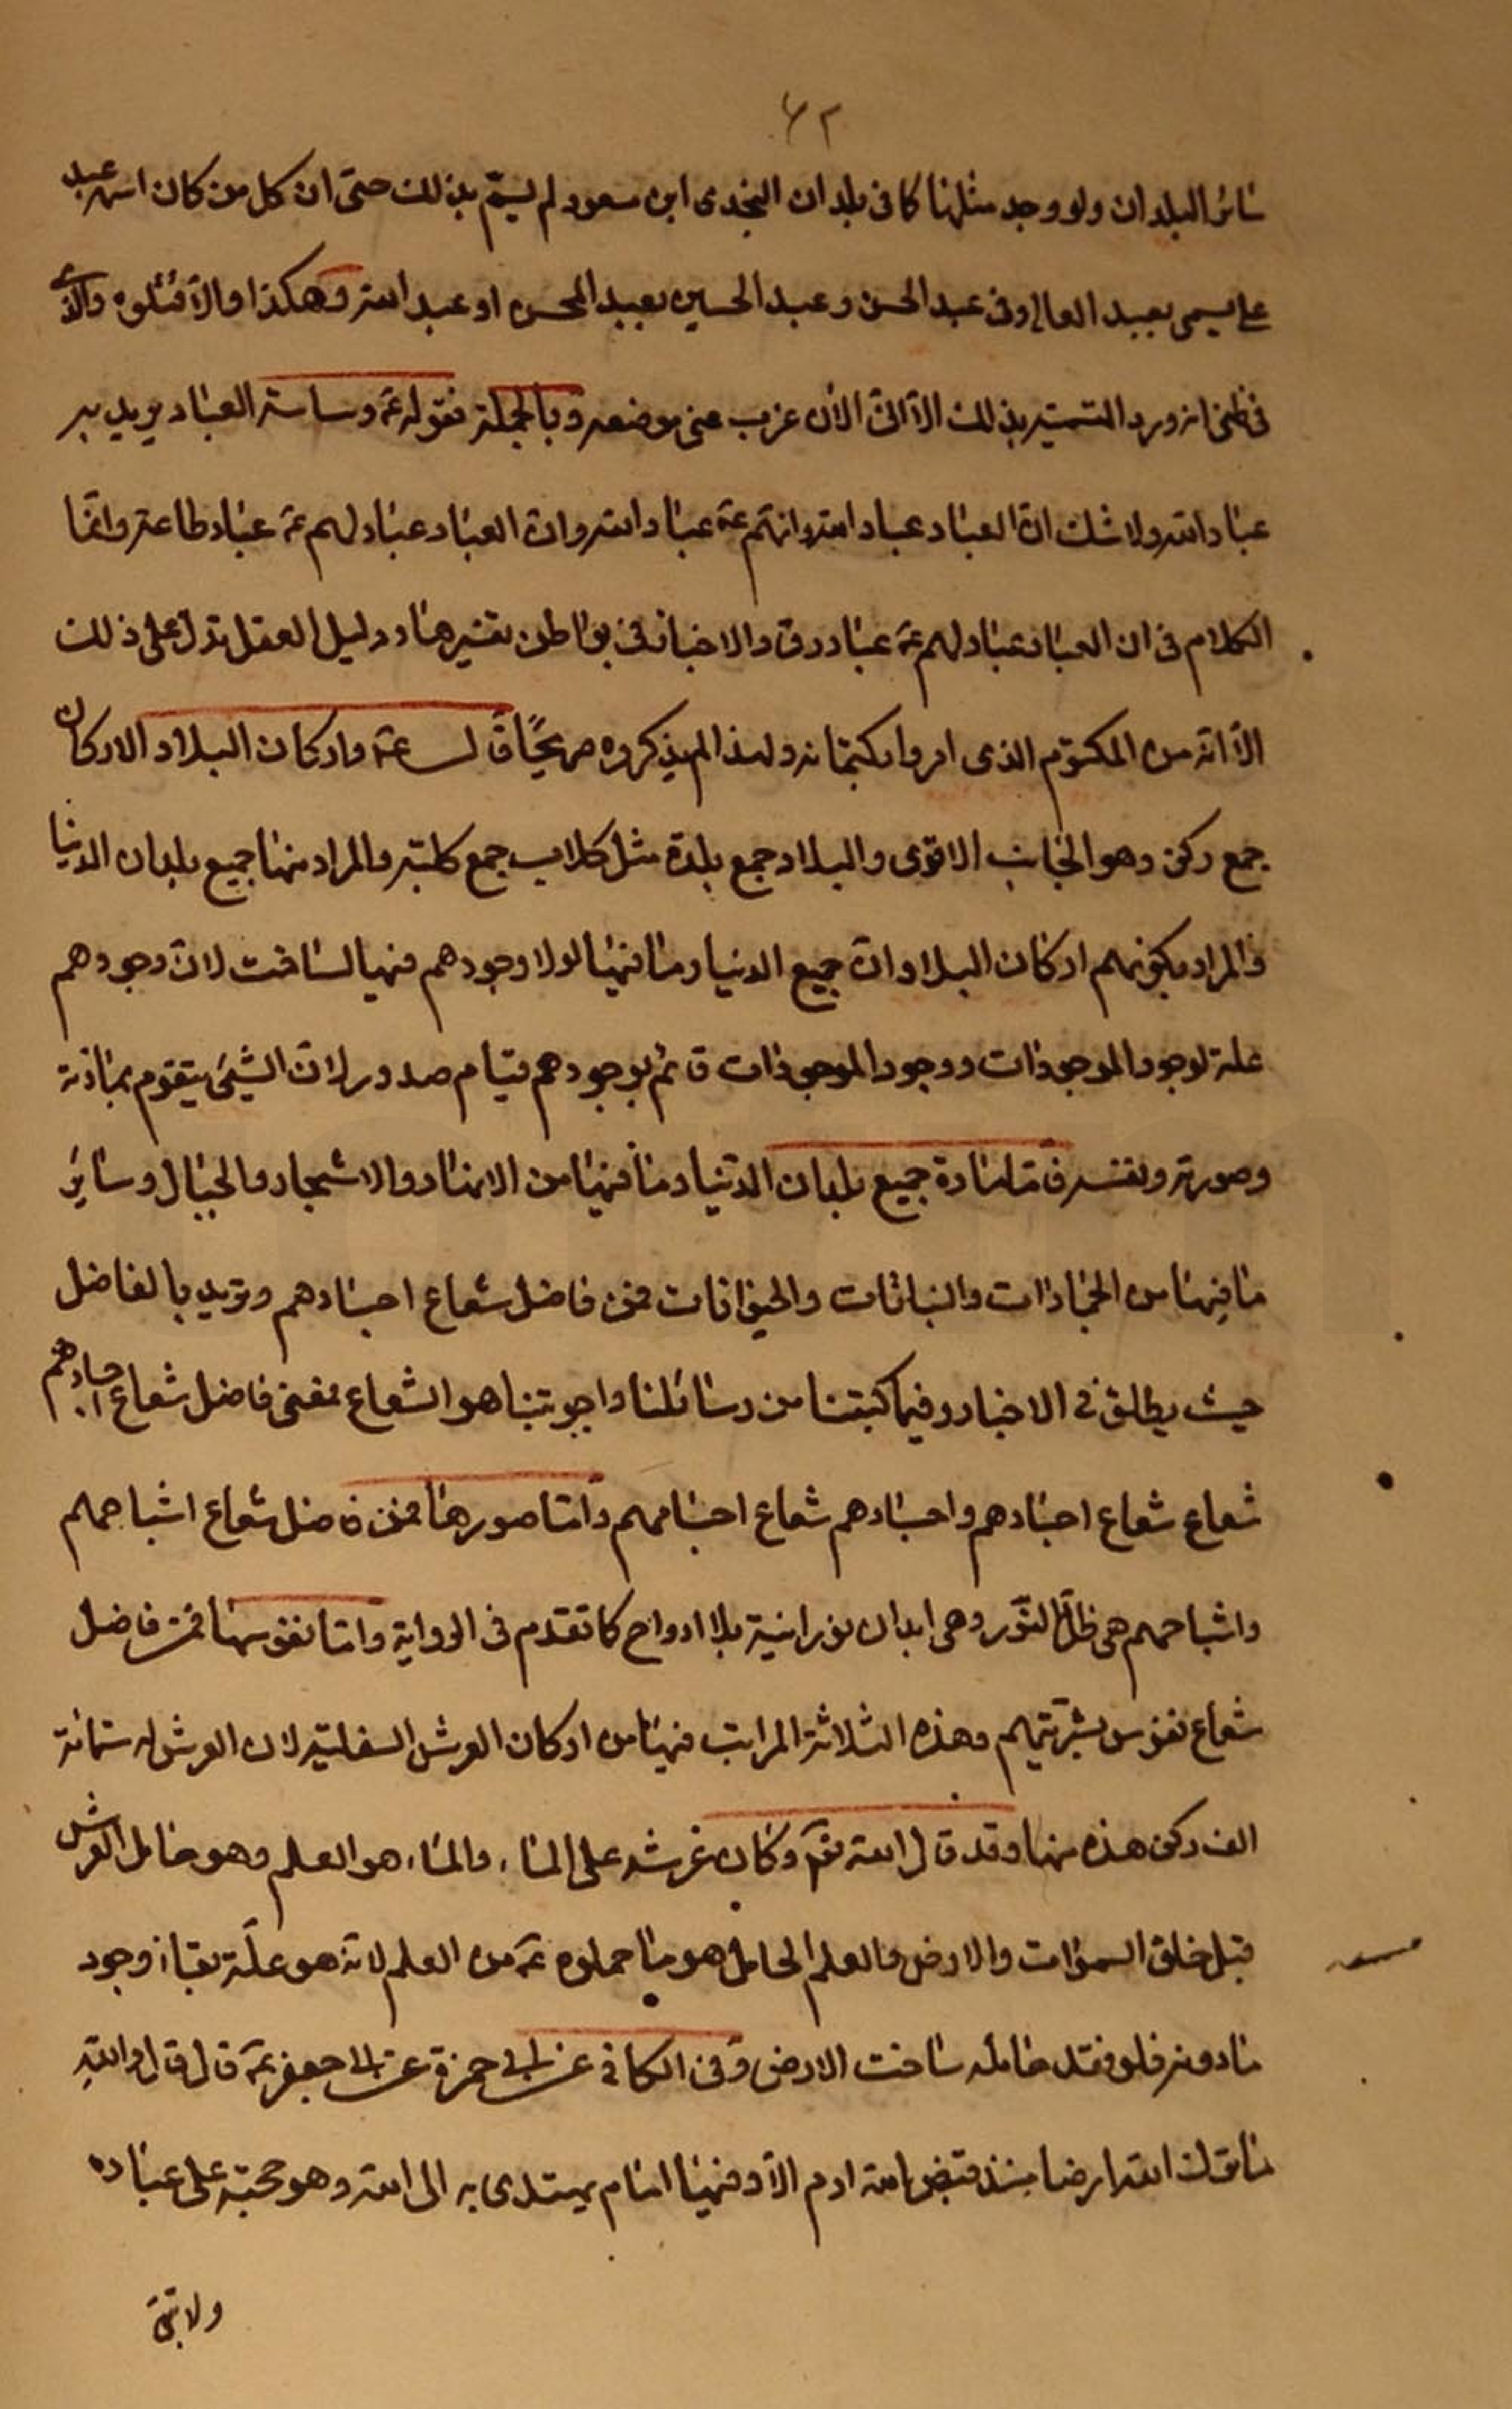 ٦٢
سائر البلدان ولو وجد مثلها كما فى بلدان النجدى ابن سعود لم يسمّ بذلك حتى ان كل من كان اسمه عبد
على يسمى بعبد العالى وفى عبد الحسن وعبد الحسين بعبد المحسن او عبد الله وهكذا والّا قتلوه والّذى
فى ظنى انه ورد التسمية بذلك الّا انّ الان عزب عنى موضعه وبالجملة فقوله ع وساسة العباد يريد به
عباد الله ولا شك انّ العباد عباد الله وانهم ع عباد الله وانّ العباد عباد لهم ع عباد طاعة وانّما
الكلام فى ان العباد عباد لهم ع عباد رق والاخبار فى بواطن تفسيرها ودليل العقل تدل على ذلك
الّا انّه من المكتوم الذى امروا بكتمانه ولهذا لم يذكروه صريحًا قال ع واركان البلاد الاركان
جمع ركن وهو الجانب الاقوى والبلاد جمع بلدة مثل كلاب جمع كلبة والمراد منها جميع بلدان الدنيا
والمراد بكونهم اركان البلاد انّ جميع الدنيا وما فيها لولا وجودهم فيها لساخت لانّ وجودهم
علة لوجود الموجودات ووجود الموجودات قائم بوجودهم قيام صدور لانّ الشيئ يتقوم بمادّته
وصورته ونفسه فامّا مادة جميع بلدان الدّنيا وما فيها من الانهار والاشجار والجبال وسائر
ما فيها من الجمادات والنباتات والحيوانات فمن فاضل شعاع اجسادهم ونريد بالفاضل
حيث يطلق فى الاخبار وفيما كتبنا من رسائلنا واجوبتنا هو الشعاع فمعنى فاضل شعاع اجسادهم
شعاع شعاع اجسادهم واجسادهم شعاع اجسامهم وامّا صورها فمن فاضل شعاع اشباحهم
واشباحهم هى ظلّ النّور وهى ابدان نورانية بلا ارواح كما تقدم فى الرواية وامّا نفوسها فمن فاضل
شعاع نفوس بشريّتهم وهذه الثلاثة المراتب فيها من اركان العرش السفلية لان العرش له ستمائة
الف ركن هذه منها وقد قال الله تعالى وكان عرشه على الماء والماء هو العلم وهو حامل العرش
قبل خلق السموات والارض والعلم الحامل هو ما حملوه ع من العلم لانّه هو علّة بقاء وجود
ما دونه فلو فقد حامله ساخت الارض وفى الكافى عن ابى حمزة عن ابى جعفر ع قال قال والله
ما ترك الله ارضا منذ قبض الله ادم الّا وفيها امام يهتدى به الى الله وهو حجته على عباده
ولا تبقى